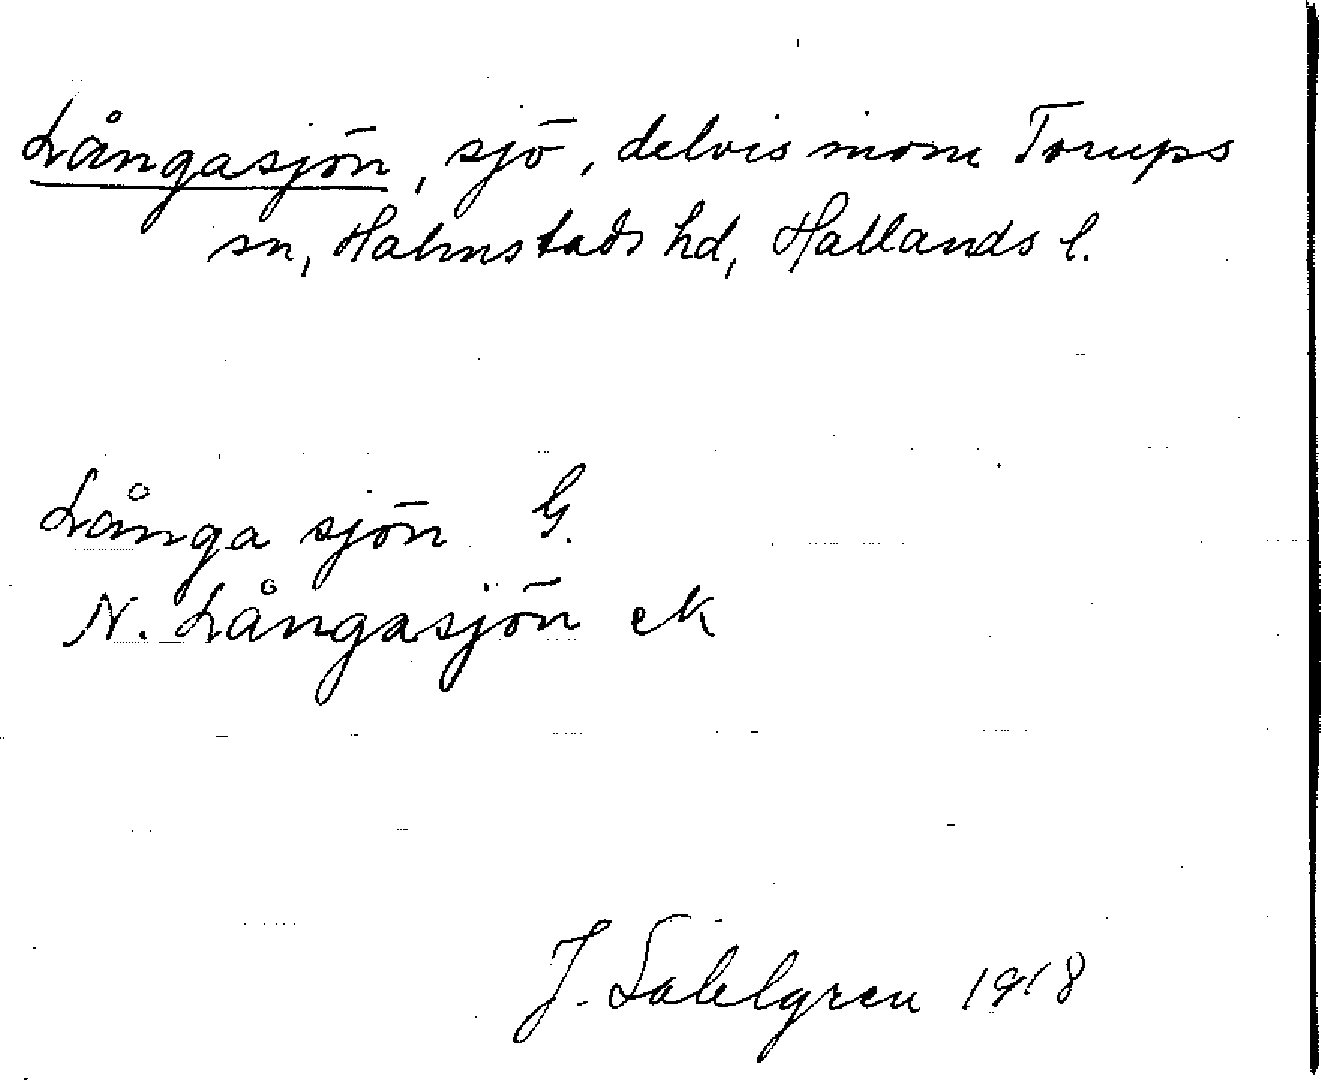 Långasjön, sjö, delvis inom Torups
sn, Halmstads hd, Hallands l.
Långa sjön G.
N. Långasjön eK
J. Sahlgren 1918